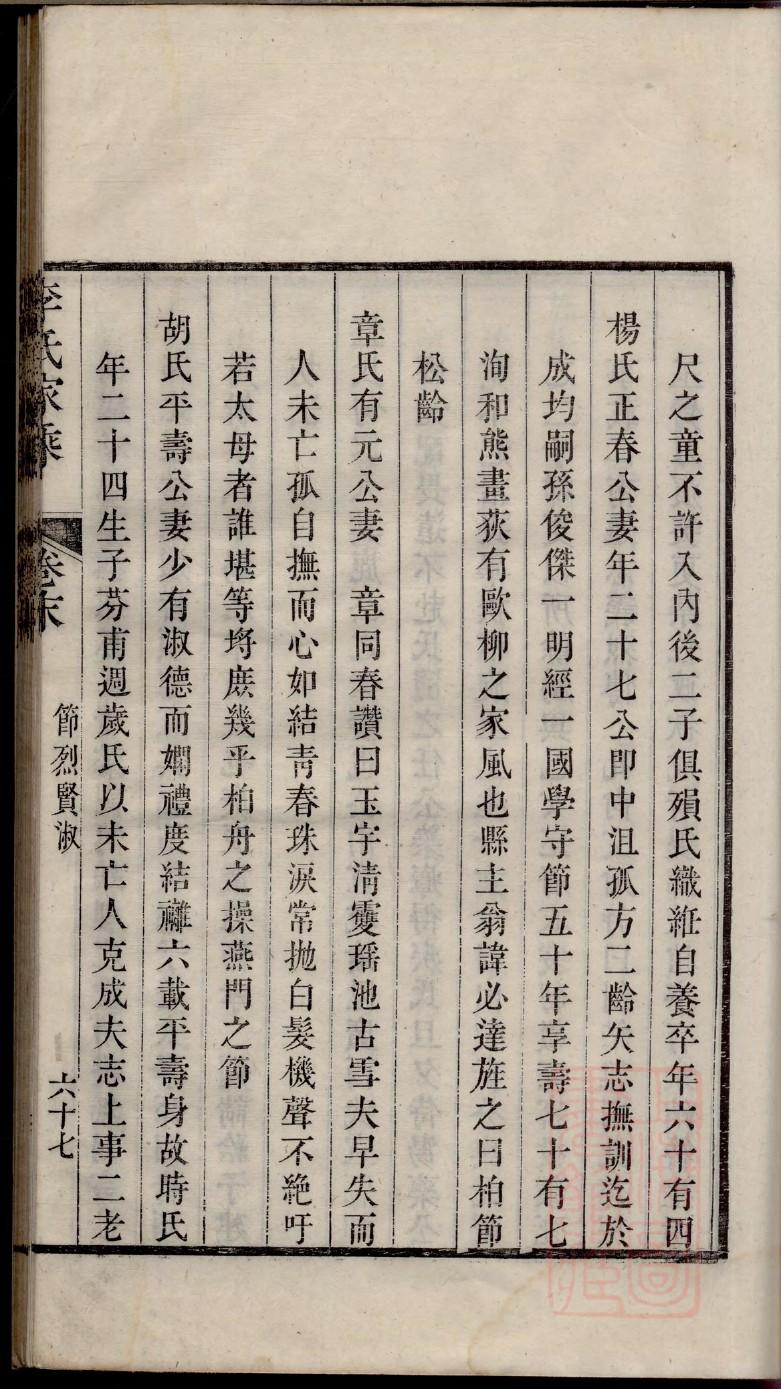 尺之童不許入內後二子俱殞氏織絍自養卒年六十有四
楊氏正春公妻年二十七公卽中沮孤方二齡矢志撫訓迄於
成均嗣孫俊傑一明經一國學守節五十年享壽七十有七
洵和熊畫荻有歐柳之家風也縣主翁諱必達旌之曰柏節
松齡
章氏有元公妻　章同春讚曰玉宇淸霙瑶池古雪夫早失而
人未亡孤自撫而心如結靑春珠淚常拋白髮機聲不絶吁
若太母者誰堪等埒庶幾乎柏舟之操燕門之節
胡氏平壽公妻少有淑德而嫻禮度結褵六載平壽身故時氏
年二十四生子芬甫週歲氏以未亡人克成夫志上事二老
李氏家乘
卷末
節烈賢淑
六十七